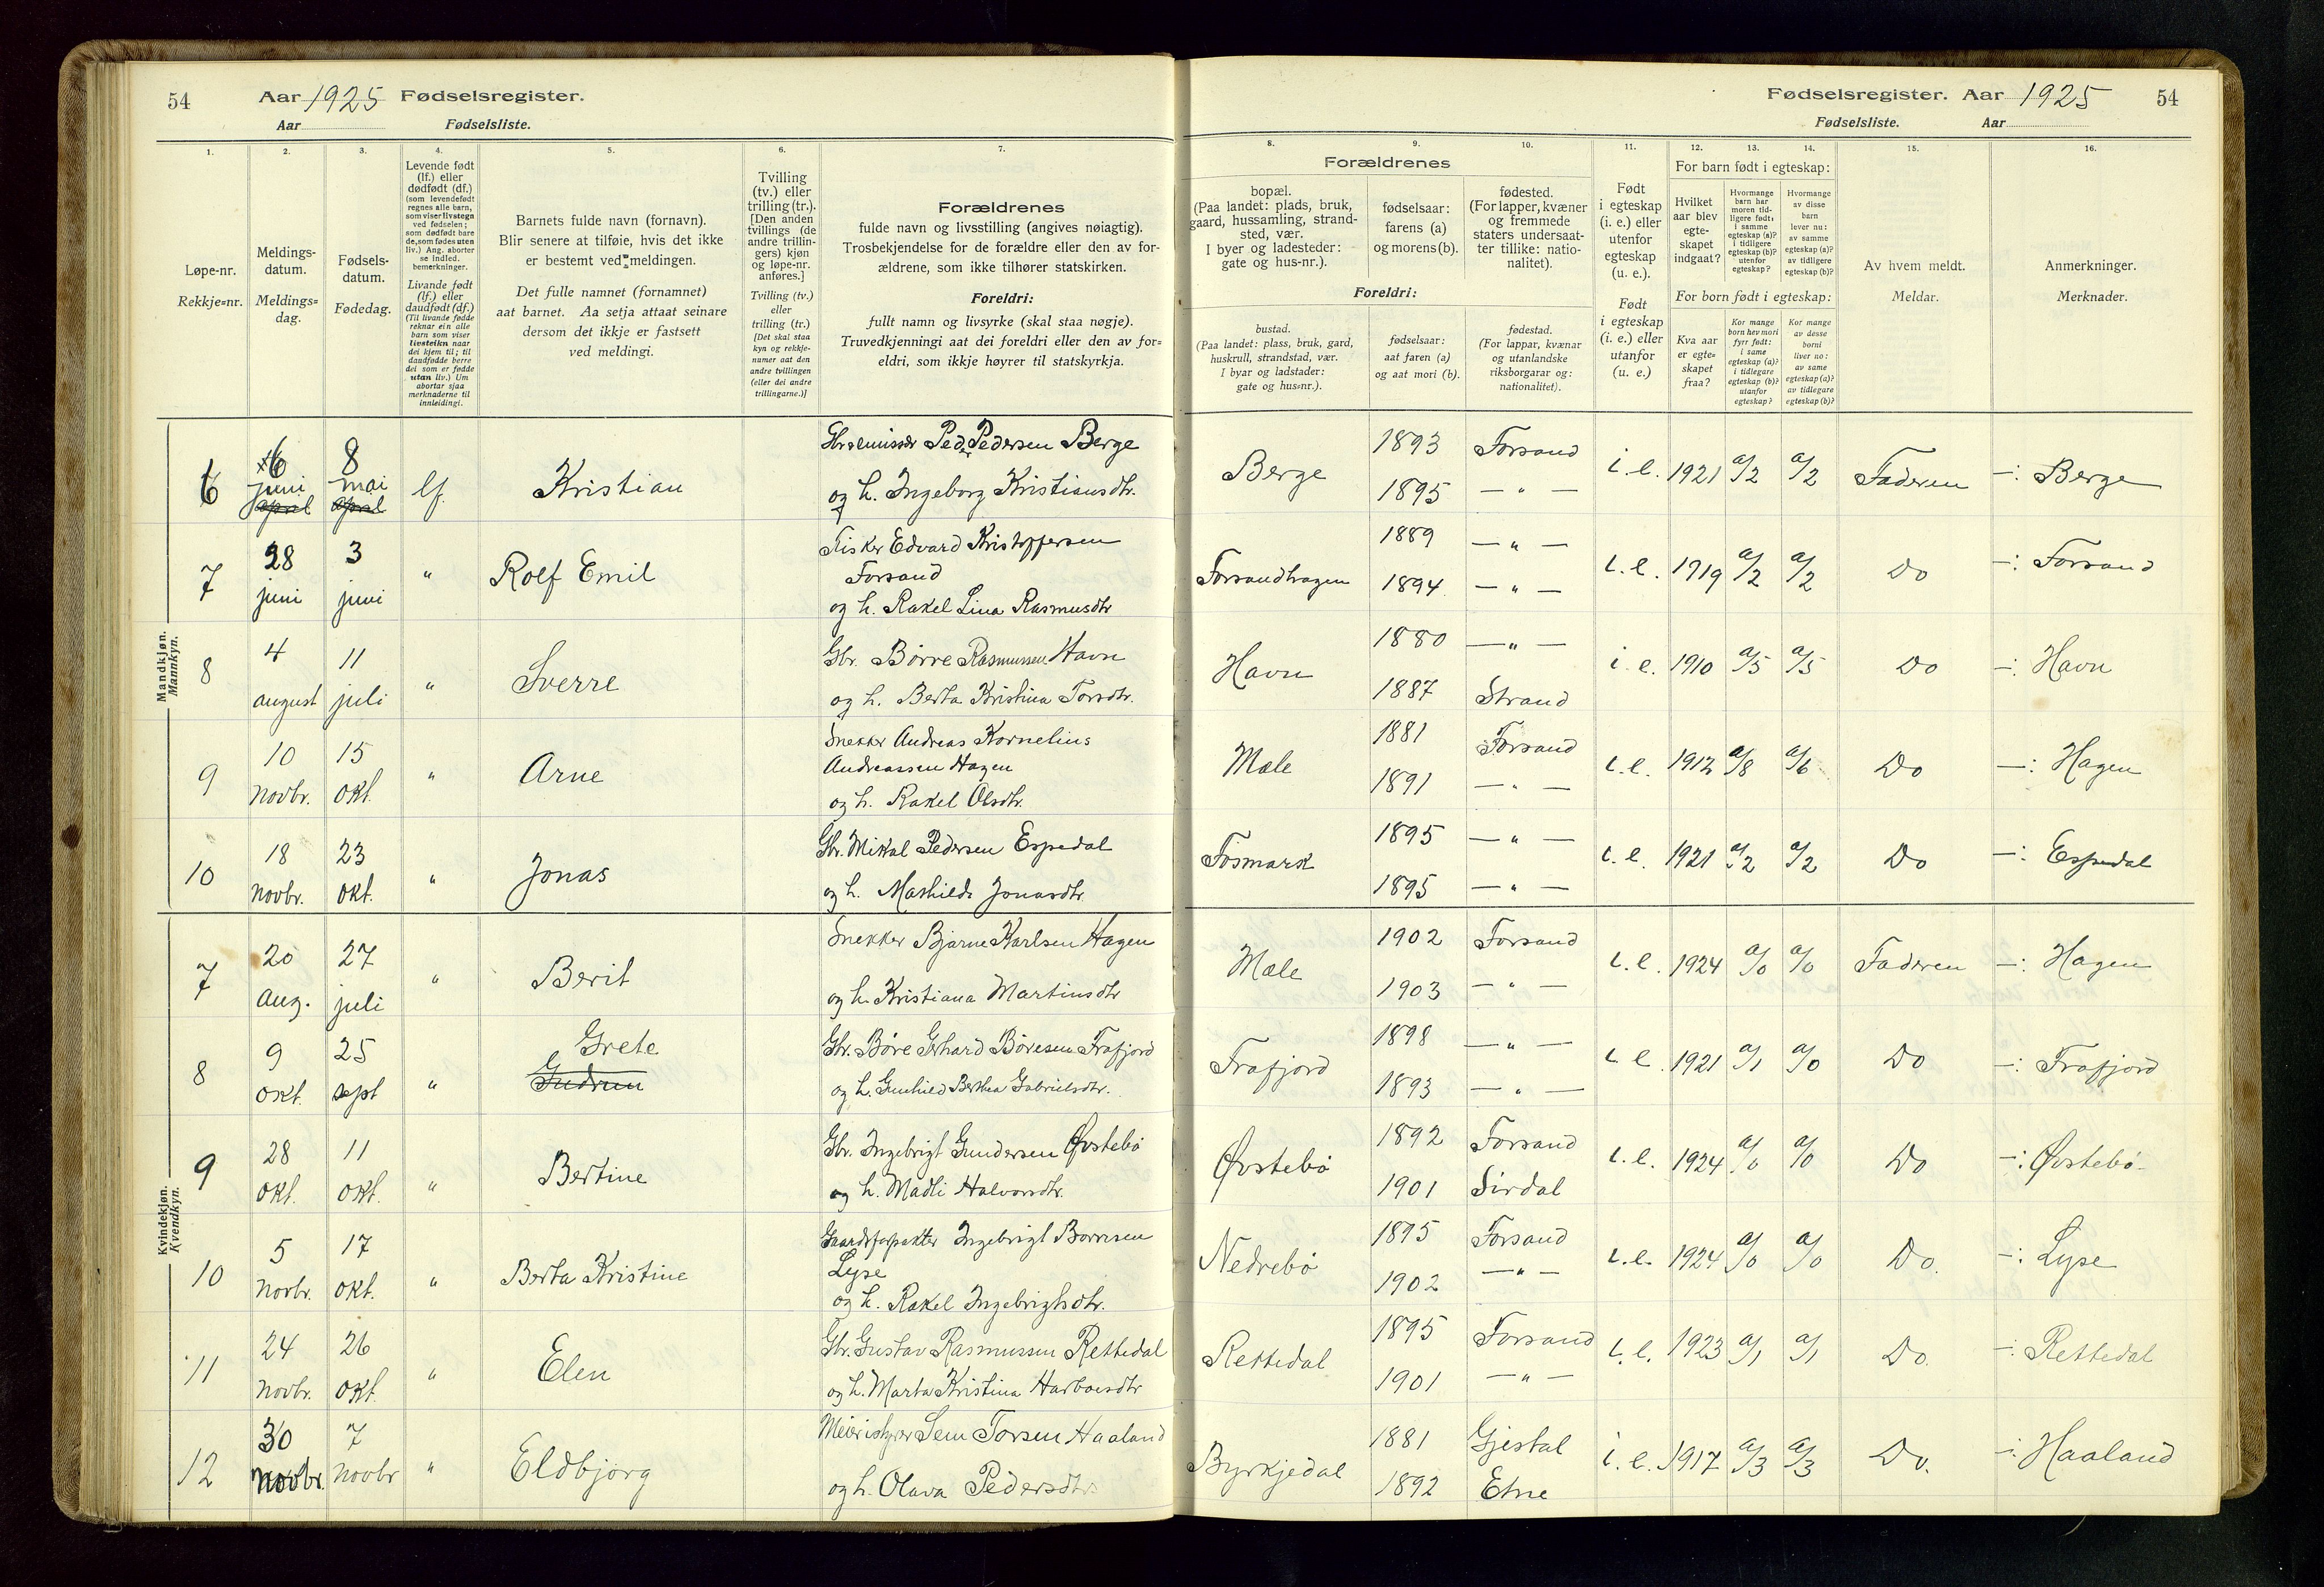 54 Aar 1925 Fødselsregister.
Aar Fødselsliste.
Fødselsregister. Aar 1925 54
Fødselsliste. Aar
1. 2. 3. 4. 5. 6. 7. 8. 9. 10. 11. 12. 13. 14. 15. 16.
Løpe-nr.
Rekkje=nr.
Meldings-
datum.
Meldings=
dag.
Fødsels-
datum.
Fødedag.
Levende født
(lf.) eller
dødfødt (df.)
(som levendefødt
regnes alle barn,
som viser livstegn
ved fødselen;
som dødfødt bare
de, som fødes uten
liv.) Ang. aborter
se indled.
bemerkninger.
Livande født
(lf.) eller
daudfødt (df.)
(Til livande fødde
reknar ein alle
barn som viser
livsteikn naar
dei kjem til; til
daudfødde berre
dei som er fødde
utan liv.) Um
abortar sjaa
merknaderne til
innleidingi.
Barnets fulde navn (fornavn).
Blir senere at tilføie, hvis det ikke
er bestemt ved meldingen.
Det fulle namnet (fornamnet)
aat barnet. Aa setja attaat seinare
dersom det ikkje er fastsett
ved meldingi.
Tvilling
(tv.) eller
trilling (tr.).
[Den anden
tvillings (de
andre trillin-
gers) kjøn
og løpe-nr.
anføres.]
Tvilling (tv.)
eller
trilling (tr.)
[Det skal staa
kyn og rekkje-
numer aat den
andre tvillingen
(eller dei andre
trillingarne.)]
Forældrenes
fulde navn og livsstilling (angives nøiagtig).
Trosbekjendelse for de forældre eller den av for-
ældrene, som ikke tilhører statskirken.
Foreldri:
fullt namn og livsyrke (skal staa nøgje).
Truvedkjenningi aat dei foreldri eller den av for=
eldri, som ikkje høyrer til statskyrkja.
Forældrenes
bopæl.
(Paa landet: plads, bruk,
gaard, hussamling, strand-
sted, vær.
I byer og ladesteder:
gate og hus-nr.).
fødselsaar:
farens (a)
og morens (b).
fødested.
(For lapper, kvæner
og fremmede
staters undersaat-
ter tillike: natio-
nalitet).
Foreldri:
bustad.
(Paa landet: plass, bruk, gard,
huskrull, strandstad, vær.
I byar og ladstader:
gate og hus=nr.).
fødselsaar:
aat faren (a)
og aat mori (b).
fødestad.
(For lappar, kvænar
og utanlandske
riksborgarar og:
nationalitet).
Født
i egteskap
(i. e.) eller
utenfor
egteskap
(u. e.).
Født
i egteskap
(i. e.) eller
utanfor
(u. e.)
For barn født i egteskap:
Hvilket
aar blev
egte-
skapet
indgaat?
Hvormange
barn har
moren tid-
ligere født:
i samme
egteskap (a)?
i tidligere
egteskap (b)?
utenfor
egteskap?
Hvormange
av disse
barn
lever nu:
av samme
egteskap (a)?
av tidligere
egteskap (b)?
For born født i egteskap:
Kva aar
er egte=
skapet
fraa?
Kor mange
born hev mori
fyrr født:
i same
egteskap (a)?
i tidlegare
egteskap (b)?
utanfor
egteskap?
Kor mange
av desse
borni
liver no:
av same
egteskap (a)?
av tidlegare
egteskap (b)?
Av hvem meldt.
Meldar.
Anmerkninger.
Merknader.
Mandkjøn.
Mannkyn.
6 6 juni april 8 mai april lf. Kristian Ped. Pedersen Berge
og h. Ingeborg Kristiansdtr. Berge 1893 1895 Forsand — " — i. e. 1921 a/2 a/2 Faderen —: Berge
7 28 juni 3 juni " Rolf Emil Fisker Edvard Kristoffersen
Forsand
og h. Rakel Lina Rasmusdtr Forsandhagen 1889 1894 — " — — " — i. e. 1919 a/2 a/2 Do —: Forsand
8 4 august 11 juli " Sverre Gbr. Børre Rasmussen Havn
og h. Berta Kristina Torsdtr. Havn 1880 1887 — " — Strand i. e. 1910 a/5 a/5 Do —: Havn
9 10 novbr. 15 okt. " Arne Snekker Andreas Kornelius
Andreassen Hagen
og h. Rakel Olsdtr. Mæle 1881 1891 Forsand — " — i. e. 1912 a/8 a/6 Do —: Hagen
10 18 novbr. 23 okt. " Jonas Gbr. Mikal Pedersen Espedal
og h. Mathilde Jonasdtr Fosmark 1895 1895 — " — — " — i. e. 1921 a/2 a/2 Do —: Espedal
Kvindekjøn.
Kvendkyn.
7 20 aug. 27 juli " Berit Snekker Bjarne Karlsen Hagen
og h. Kristiana Martinsdtr Mæle 1902 1903 Forsand — " — i. e. 1924 a/0 a/0 Faderen —: Hagen
8 9 okt. 25 sept " Grete Gudrun Gbr. Børe Gerhard Børesen Frafjord
og h. Gunhild Berthea Gabrielsdtr. Frafjord 1898 1893 — " — — " — i. e. 1921 a/1 a/0 Do —: Frafjord
9 28 okt. 11 okt. " Bertine Gbr. Ingebrigt Gundersen Øvstebø
og h. Madli Halvorsdtr. Øvstebø 1892 1901 Forsand Sirdal i. e. 1924 a/0 a/0 Do —: Øvstebø
10 5 novbr. 17 okt. " Berta Kristine Gaardsforpakter Ingebrigt Børresen
Lyse
og h. Rakel Ingebrigtsdtr. Nedrebø 1895 1902 Forsand — " — i. e. 1924 a/0 a/0 Do. —: Lyse
11 24 novbr. 26 okt. " Elen Gbr. Gustav Rasmussen Rettedal
og h. Marta Kristina Harboesdtr Rettedal 1895 1901 Forsand — " — i. e. 1923 a/1 a/1 Do. —: Rettedal
12 30 novbr. 7 novbr " Eldbjørg Meieristyrer Sem Torsen Haaland
og h. Olava Pedersdtr Byrkjedal 1881 1892 Gjestal Etne i. e. 1917 a/3 a/3 Do. —: Haaland